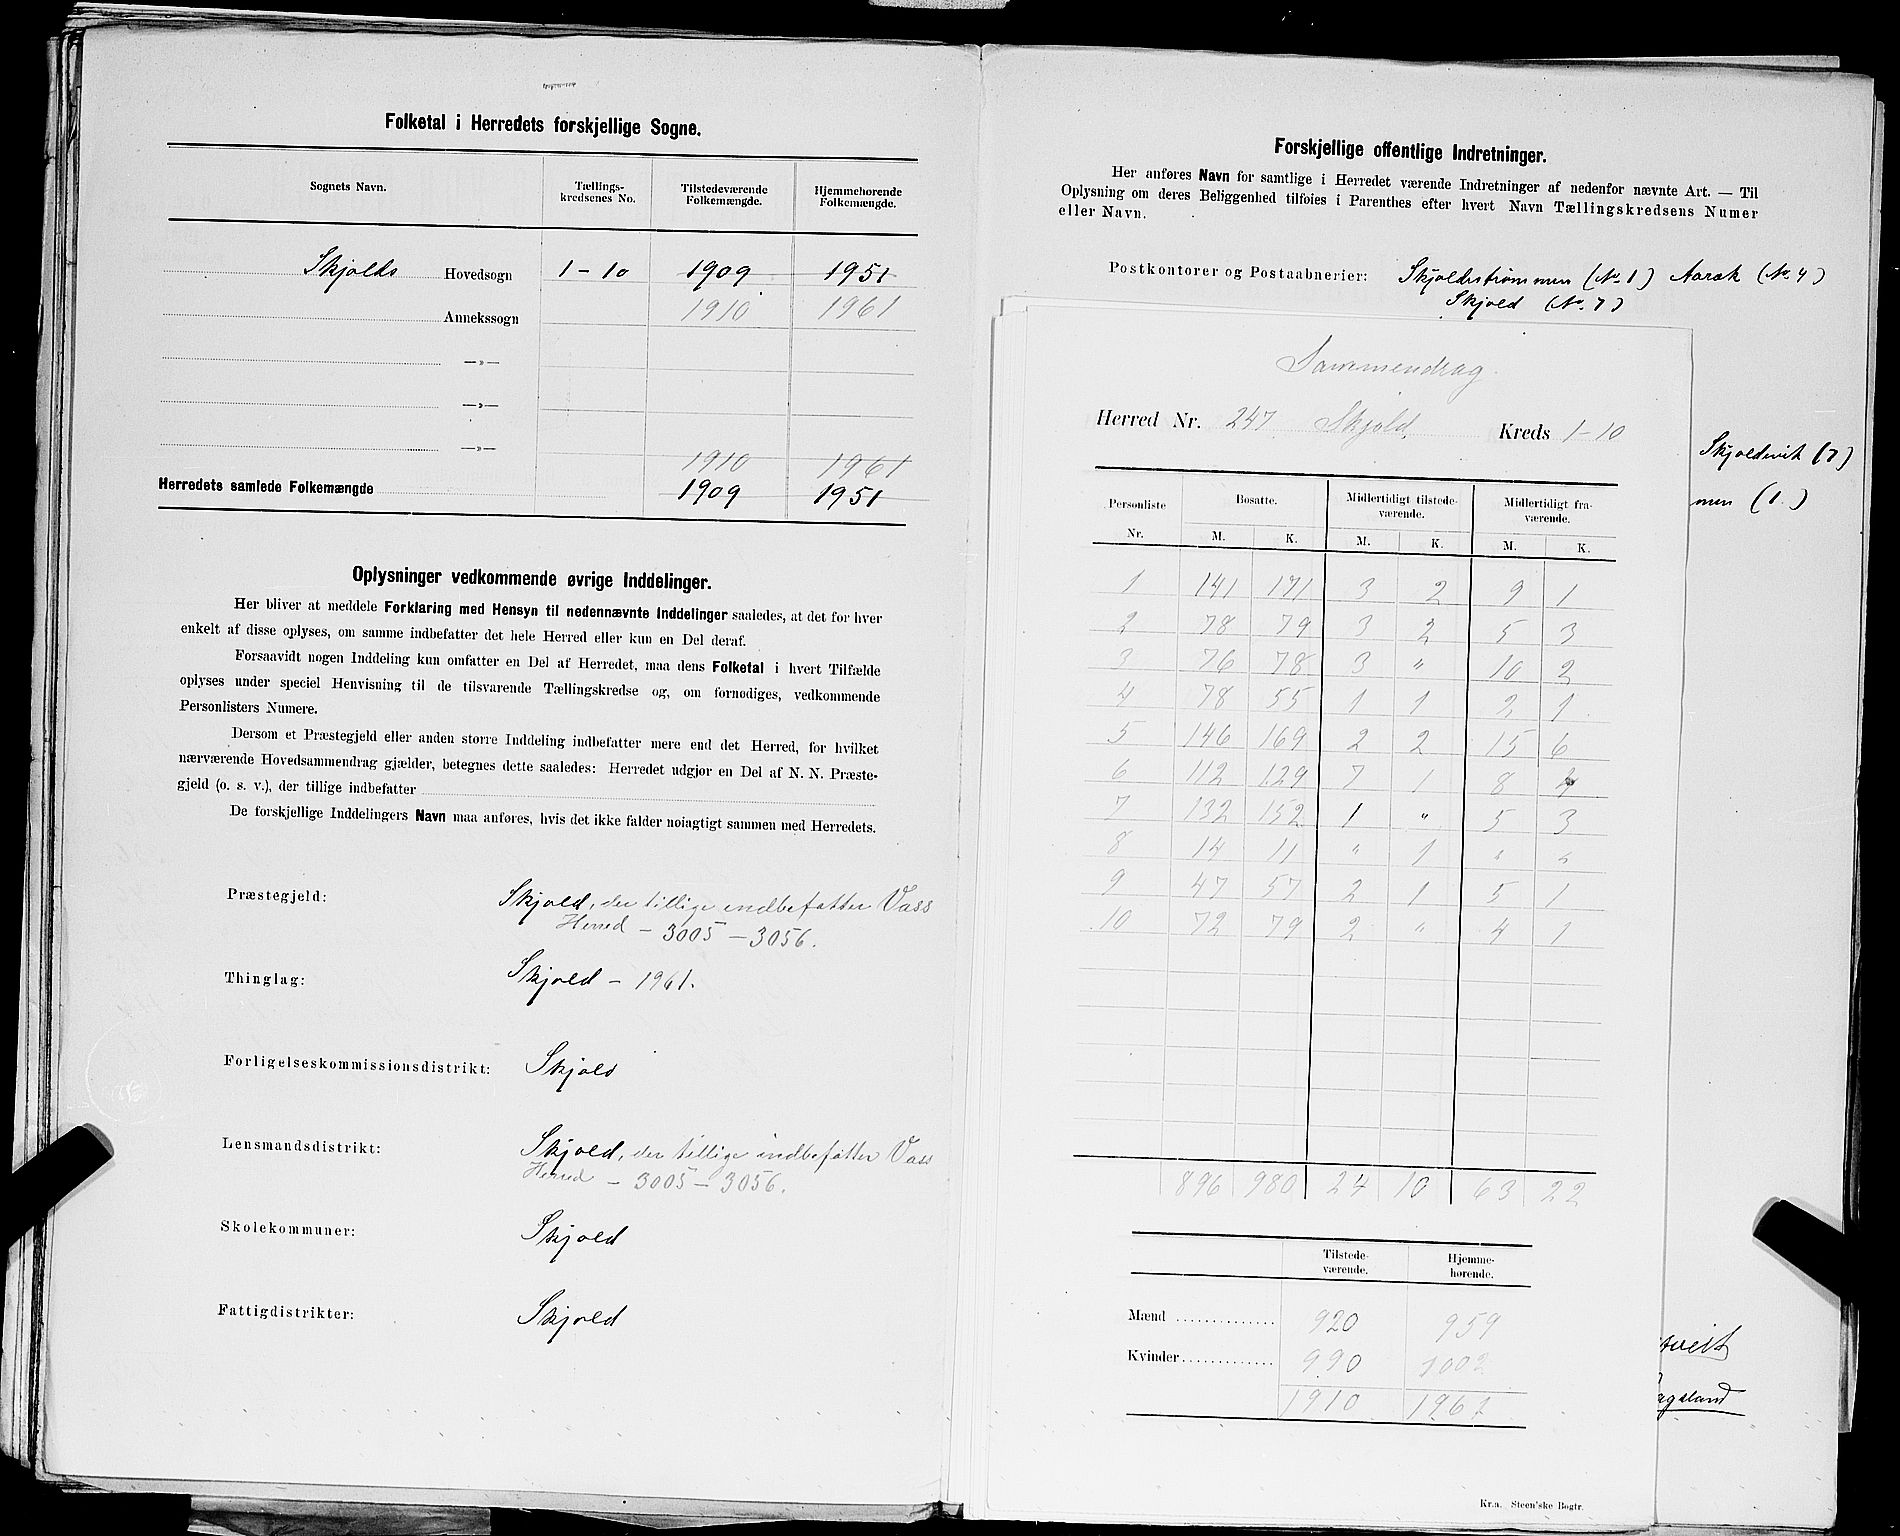 Folketal i Herredets forskjellige Sogne.
Sognets Navn. Tællings-kredsenes No. Tilstedeværende Folkemængde. Hjemmehørende Folkemængde.
Skjolds Hovedsogn 1-10 1909 1951
Annekssogn 1910 1961
—»—
—»—
—»—
1910 1961
Herredets samlede Folkemængde 1909 1951
Oplysninger vedkommende øvrige Inddelinger.
Her bliver at meddele Forklaring med Hensyn til nedennævnte Inddelinger saaledes, at det for hver
enkelt af disse oplyses, om samme indbefatter det hele Herred eller kun en Del deraf.
Forsaavidt nogen Inddeling kun omfatter en Del af Herredet, maa dens Folketal i hvert Tilfælde
oplyses under speciel Henvisning til de tilsvarende Tællingskredse og, om fornødiges, vedkommende
Personlisters Numere.
Dersom et Præstegjeld eller anden større Inddeling indbefatter mere end det Herred, for hvilket
nærværende Hovedsammendrag gjælder, betegnes dette saaledes: Herredet udgjør en Del af N. N. Præste-
gjeld (o. s. v.), der tillige indbefatter
De forskjellige Inddelingers Navn maa anføres, hvis det ikke falder nøiagtigt sammen med Herredets.
Præstegjeld: Skjold, der tillige indbefatter Vass
Herred - 3005 - 3056.
Thinglag: Skjold - 1961.
Forligelseskommissionsdistrikt: Skjold
Lensmandsdistrikt: Skjold, der tillige indbefatter Vass
Herred - 3005 - 3056.
Skolekommuner: Skjold
Fattigdistrikter: Skjold
Forskjellige offentlige Indretninger.
Her anføres Navn for samtlige i Herredet værende Indretninger af nedenfor nævnte Art. — Til
Oplysning om deres Beliggenhed tilføies i Parenthes efter hvert Navn Tællingskredsens Numer
eller Navn.
Postkontorer og Postaabnerier: Skjoldestrømmen (No. 1) Aarak (No. 4)
Skjold (No. 7)
Skjoldevik (7)
men (1.)
Sammendrag.
Herred Nr. 247 Skjold. Kreds 1-10
Personliste Nr. Bosatte. Midlertidigt tilstedeværende. Midlertidigt fraværende.
M. K. M. K. M. K.
1 141 171 3 2 9 1
2 78 79 3 2 5 3
3 76 78 3 " 10 2
4 78 55 1 1 2 1
5 146 169 2 2 15 6
6 112 129 7 1 8 4
7 132 152 1 " 5 3
8 14 11 " 1 " "
9 47 57 2 1 5 1
10 72 79 2 " 4 1
896 980 24 10 63 22
Tilstedeværende. Hjemmehørende.
Mænd 920 959
Kvinder 990 1002
1910 1961
Kr.a. Steen'ske Bogtr.